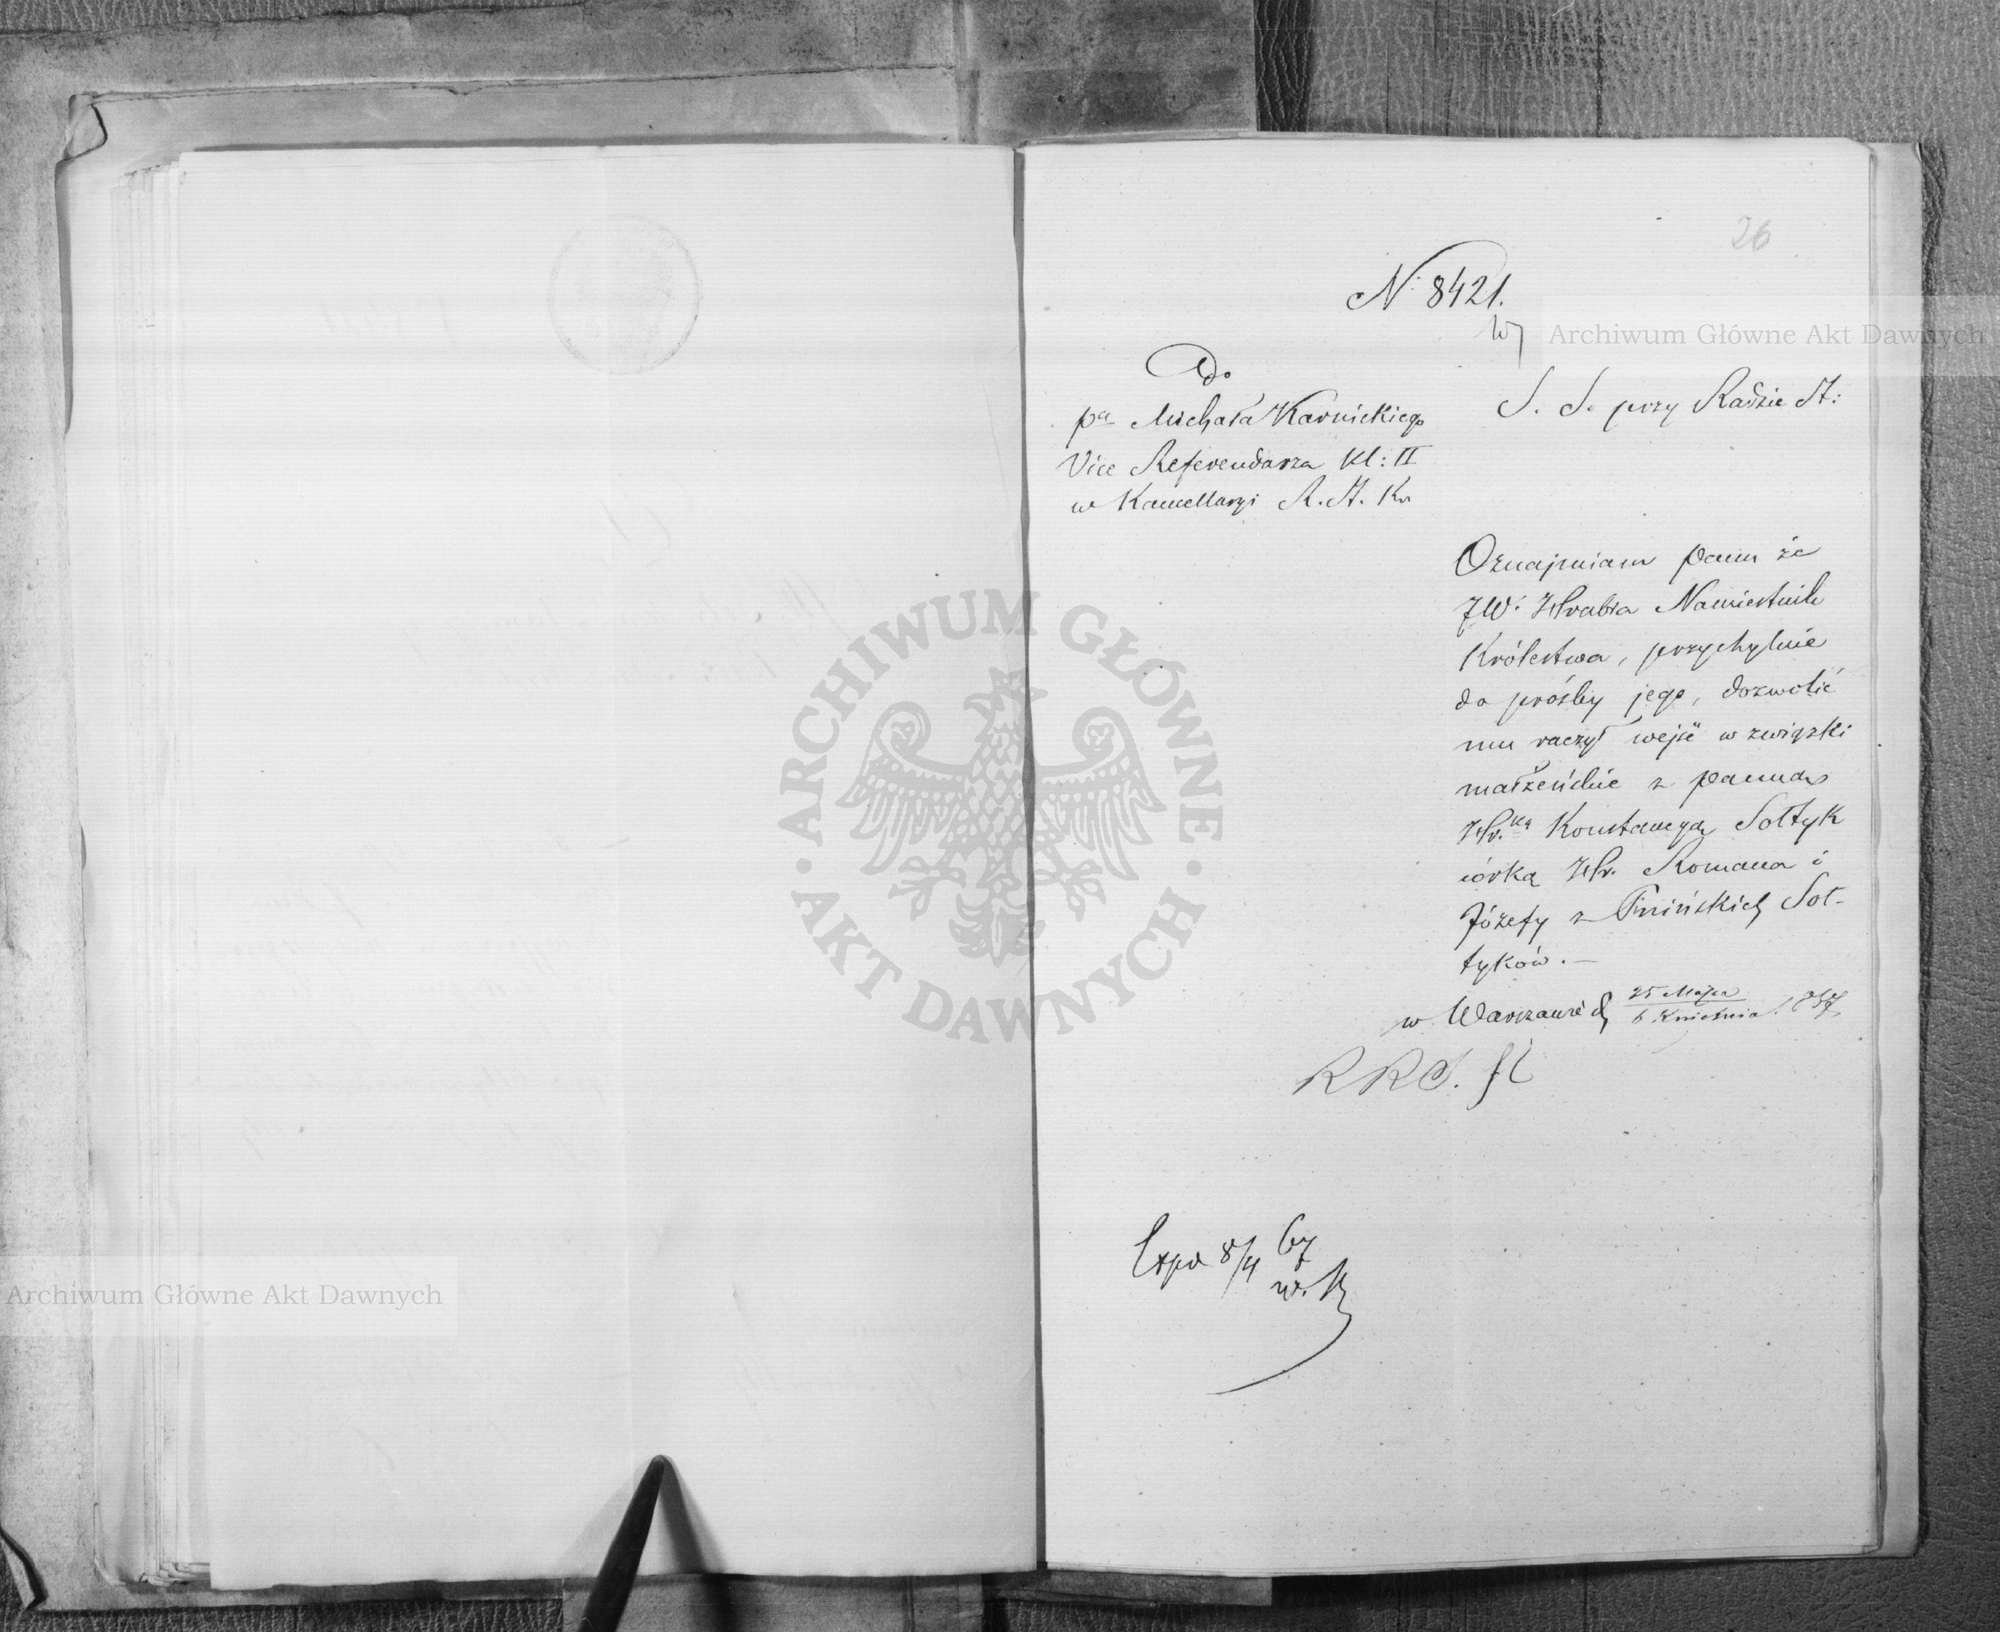 26
N: 8421.
Archiwum Główne Akt Dawnych
Do
pa Michała Karnickiego
Vice Referendarza Kl: II
w Kancellaryi R. A. Kr
S. S. przy Radzie A:
Oznajmiam panu że
JW. Hrabia Namiestnik
Królestwa, przychylnie
do prośby jego, dozwolić
mu raczył wejść w związki
małżeńskie z panną
Hr.ką Konstancyą Sołtyk
córką Hr. Romana i
Józefy z Pinińskich Soł-
tyków. —
w Warszawie d 25 Marca
6 Kwietnia 1857
Expd 8/4 57
w. K
ARCHIWUM GŁÓWNE
AKT DAWNYCH
Archiwum Główne Akt Dawnych